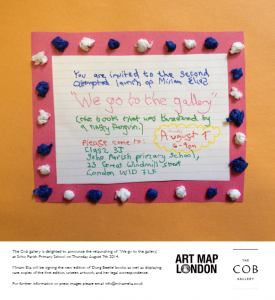 You are invited to the second
attempted launch of Miriam Elia's
"We go to the gallery"
(the book that was threatened by
a nasty penguin.)
Please come to:
Class 3J
Soho Parish primary School,
23 Great Windmill Street
London W1D 7LF
August 7
6-9pm
The Cob Gallery is delighted to announce the relaunching of 'We go to the gallery'
at Soho Parish Primary School on Thursday August 7th 2014.
Miriam Elia will be signing the new edition of 'Dung Beetle' books, as well as displaying
rare copies of the first edition, unseen artwork, and her legal correspondence.
For further information or press images please email
ART MAP
LONDON
THE
COB
GALLERY